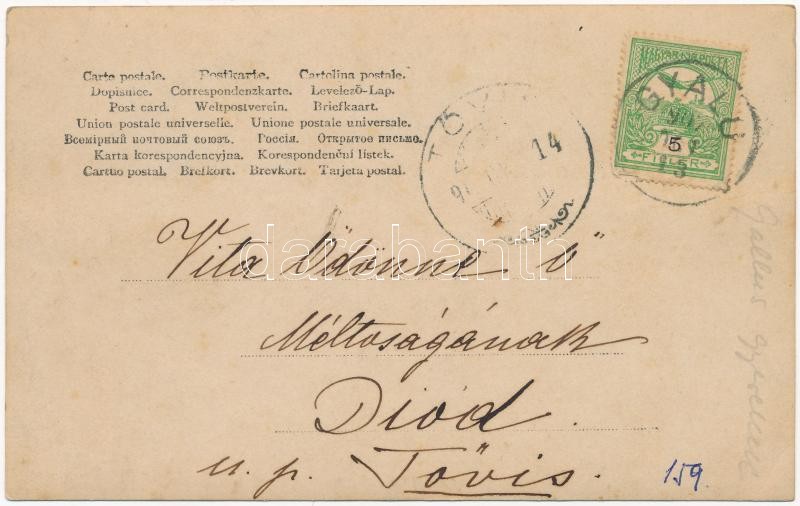 Carte postale. Postkarte. Cartolina postale.
Dopisnice. Correspondenzkarte. Levelező-Lap.
Post card. Weltpostverein. Briefkaart.
Union postale universelle. Unione postale universale.
Всемірный почтовый союзъ. Россія. Открытое письмо.
Karta korespondencyjna. Korespondenční listek.
Cartuo postal. Brefkort. Brevkort. Tarjeta postal.
TÖVIS
14
GYALU
5
FILLER
darabanth
Vita Ödönné ő"
Méltóságának
Diód.
u. p. Tövis.
159.
Gallus